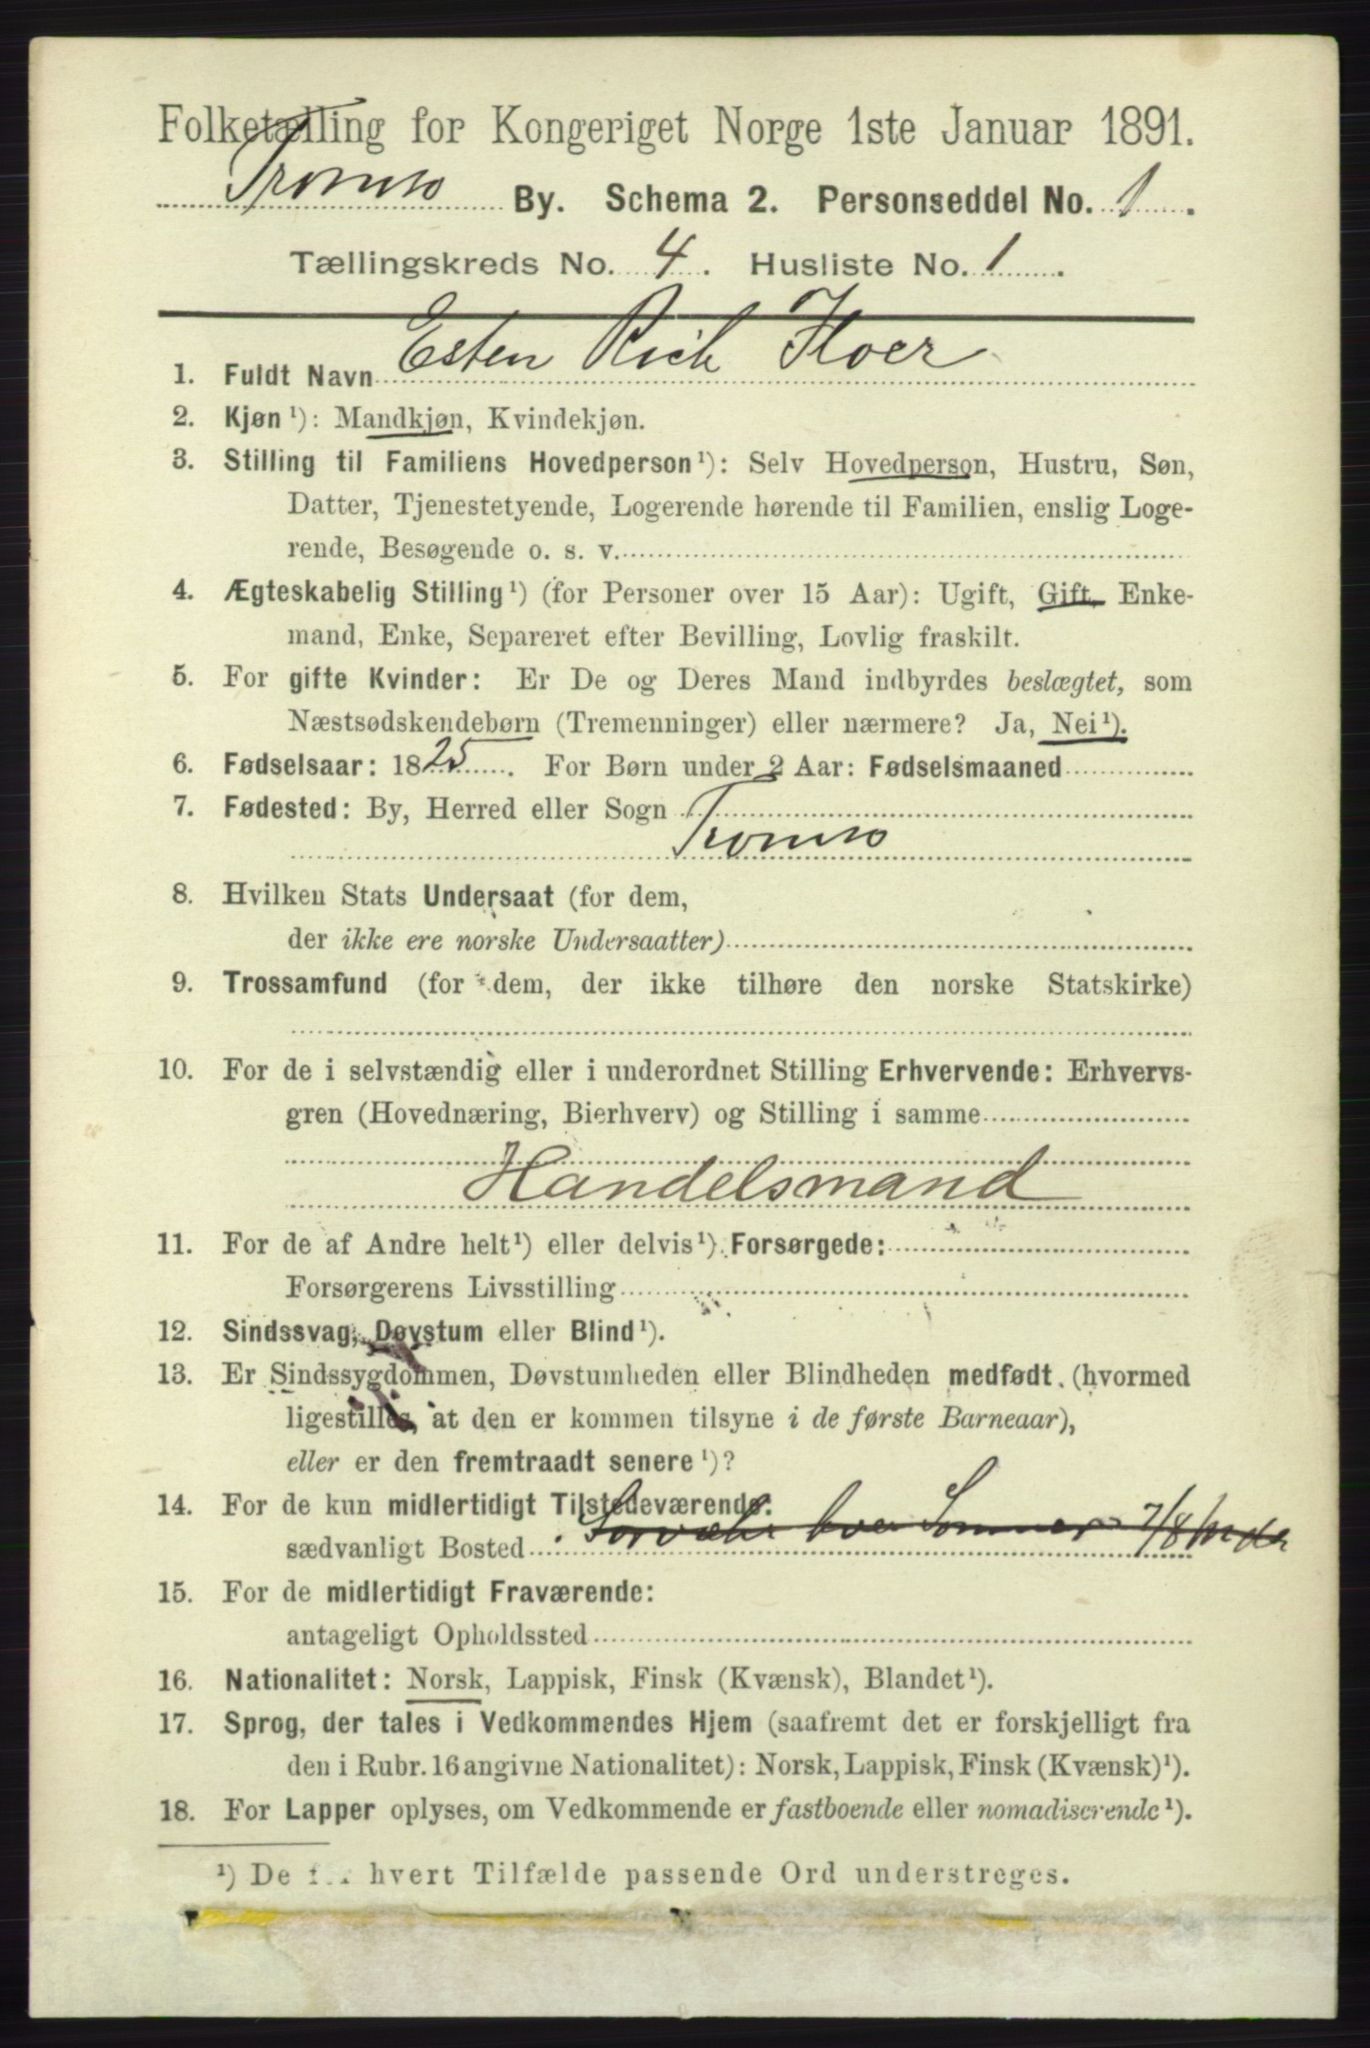 Folketælling for Kongeriget Norge 1ste Januar 1891.
Tromsø By. Schema 2. Personseddel No. 1.
Tællingskreds No. 4. Husliste No. 1.
1. Fuldt Navn Esten Rich Floer
2. Kjøn ¹): Mandkjøn, Kvindekjøn.
3. Stilling til Familiens Hovedperson ¹): Selv Hovedperson, Hustru, Søn,
Datter, Tjenestetyende, Logerende hørende til Familien, enslig Loge-
rende, Besøgende o. s. v.
4. Ægteskabelig Stilling ¹) (for Personer over 15 Aar): Ugift, Gift, Enke-
mand, Enke, Separeret efter Bevilling, Lovlig fraskilt.
5. For gifte Kvinder: Er De og Deres Mand indbyrdes beslægtet, som
Næstsødskendebørn (Tremenninger) eller nærmere? Ja, Nei ¹).
6. Fødselsaar: 1825. For Børn under 2 Aar: Fødselsmaaned
7. Fødested: By, Herred eller Sogn
Tromsø
8. Hvilken Stats Undersaat (for dem,
der ikke ere norske Undersaatter)
9. Trossamfund (for dem, der ikke tilhøre den norske Statskirke)
10. For de i selvstændig eller i underordnet Stilling Erhvervende: Erhvervs-
gren (Hovednæring, Bierhverv) og Stilling i samme
Handelsmand
11. For de af Andre helt ¹) eller delvis ¹) Forsørgede:
Forsørgerens Livsstilling
12. Sindssvag, Døvstum eller Blind ¹).
13. Er Sindssygdommen, Døvstumheden eller Blindheden medfødt (hvormed
ligestilles, at den er kommen tilsyne i de første Barneaar),
eller er den fremtraadt senere ¹)?
14. For de kun midlertidigt Tilstedeværende:
sædvanligt Bosted hver Sommer 7/8
15. For de midlertidigt Fraværende:
antageligt Opholdssted
16. Nationalitet: Norsk, Lappisk, Finsk (Kvænsk), Blandet ¹).
17. Sprog, der tales i Vedkommendes Hjem (saafremt det er forskjelligt fra
den i Rubr. 16 angivne Nationalitet): Norsk, Lappisk, Finsk (Kvænsk) ¹).
18. For Lapper oplyses, om Vedkommende er fastboende eller nomadiserende ¹).
¹) De for hvert Tilfælde passende Ord understreges.